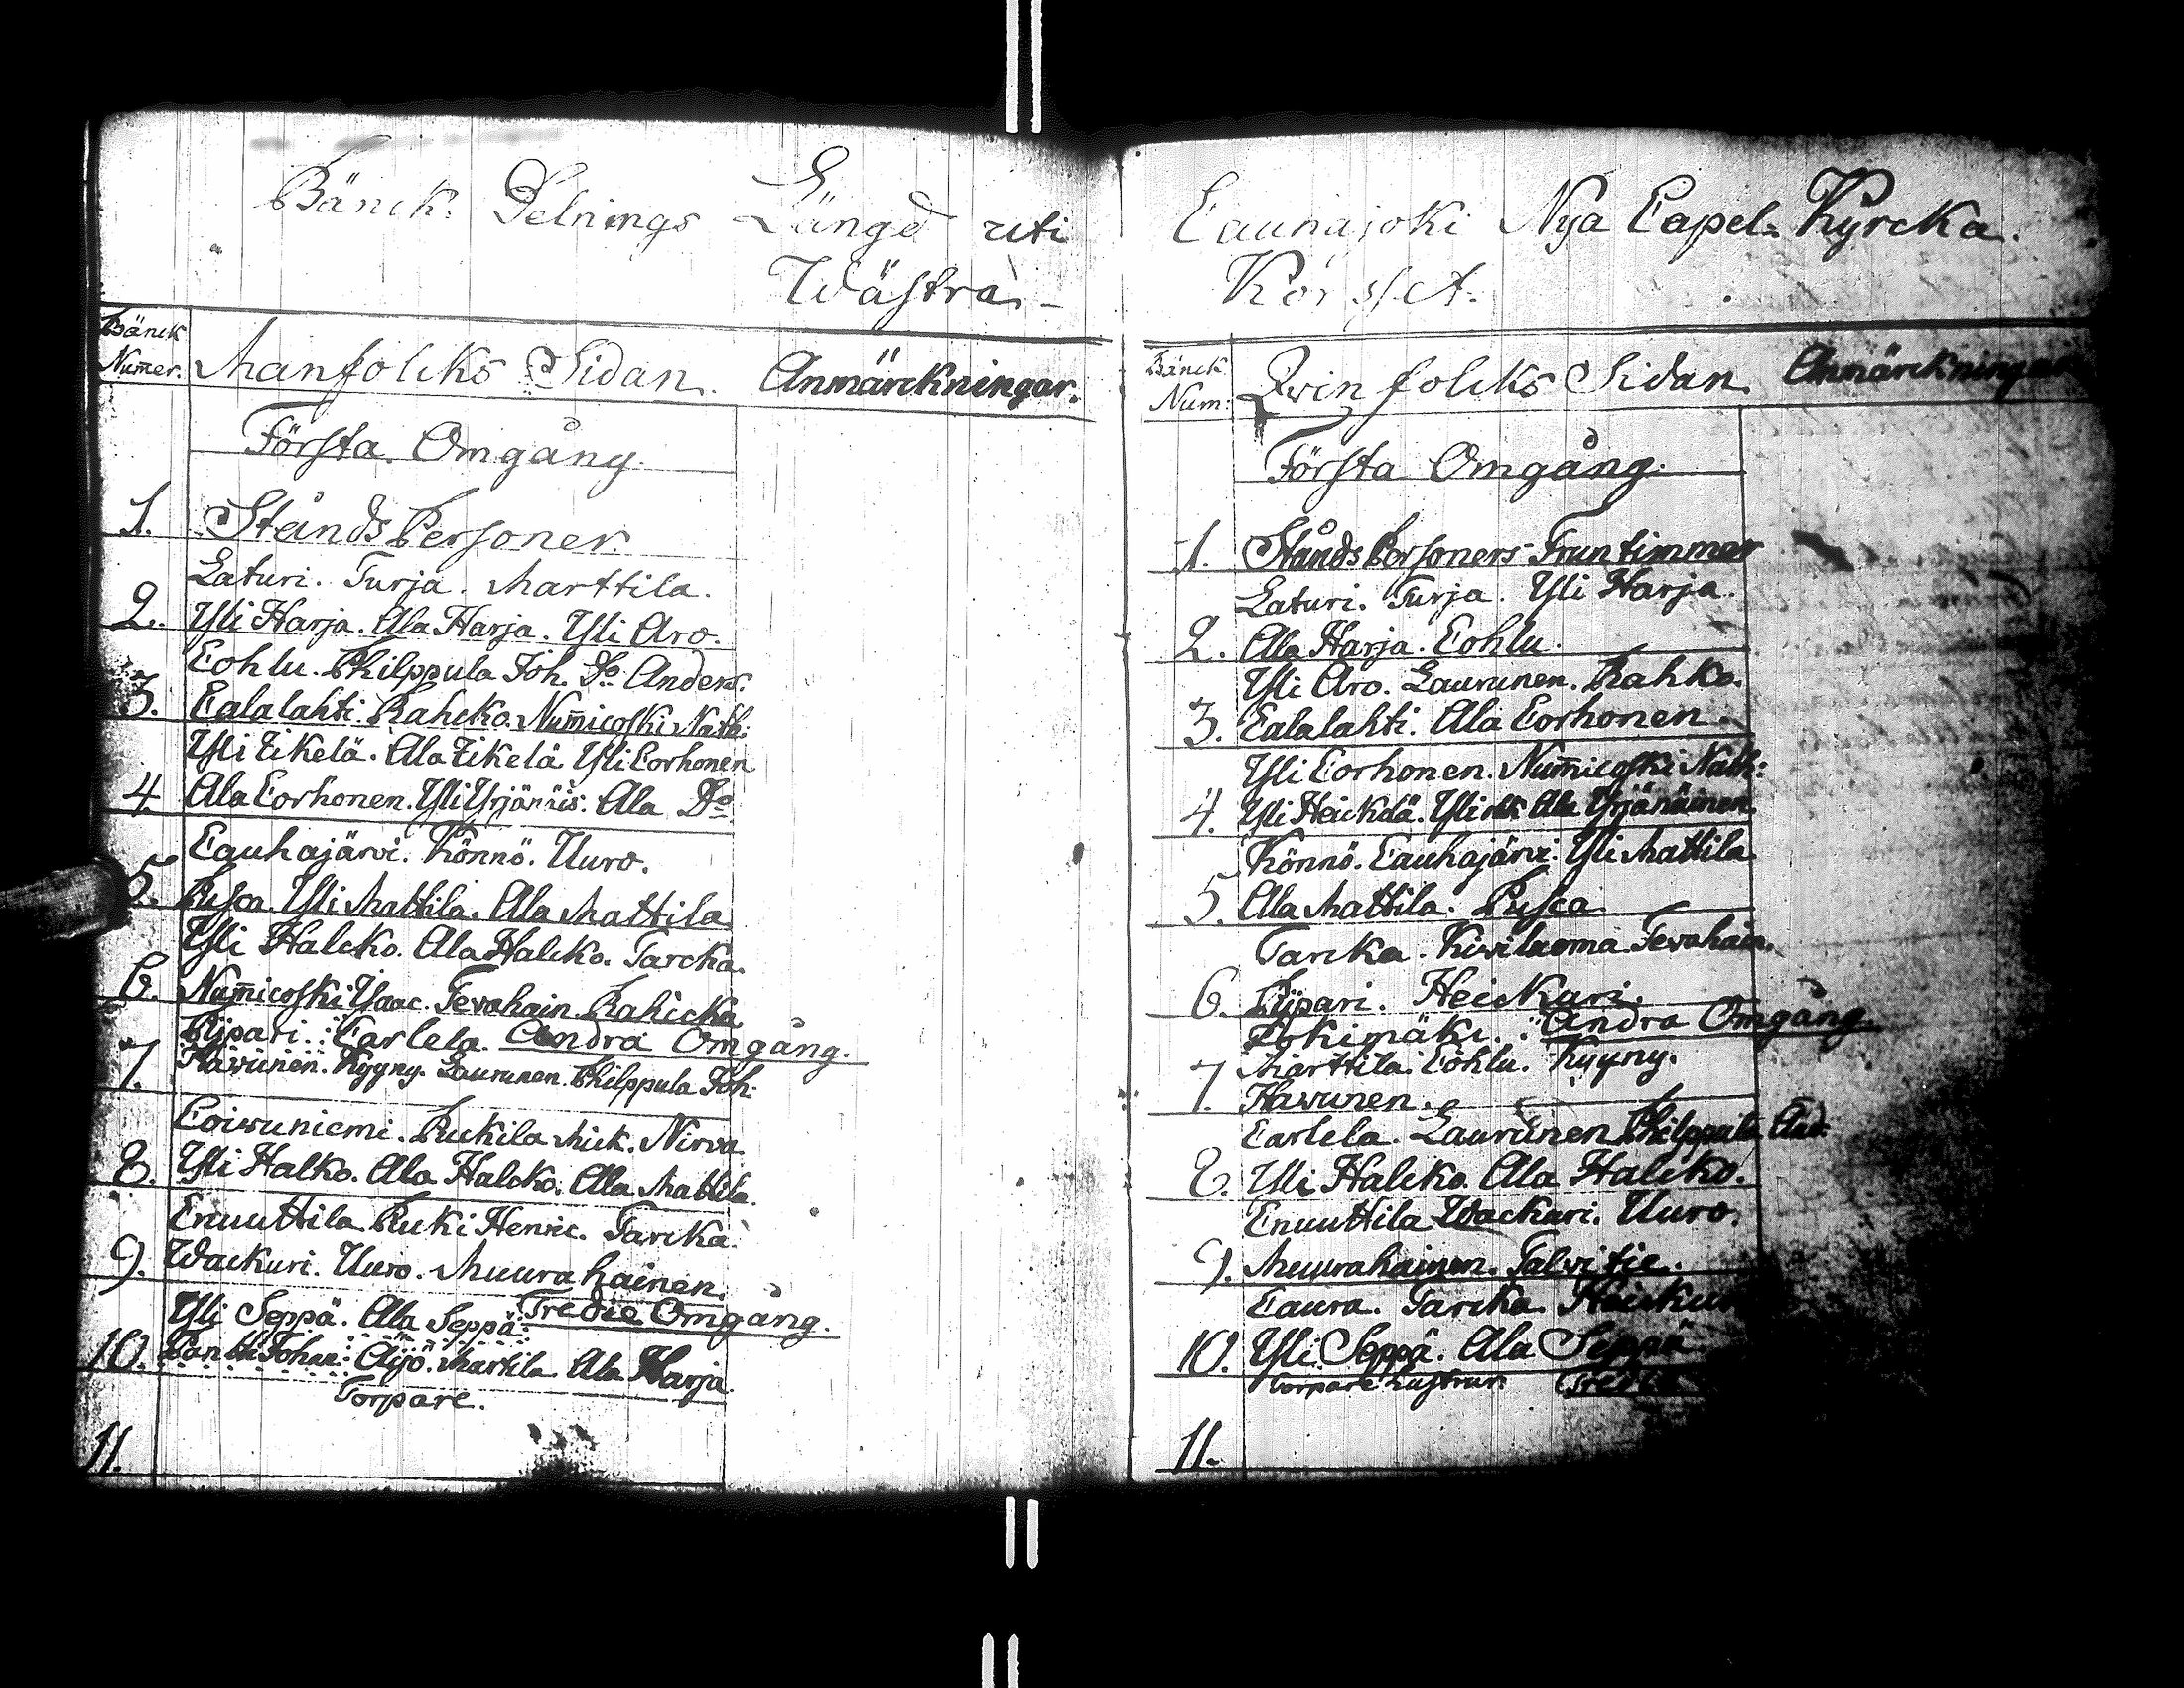 Bänck: Delnings Längd uti
Wästra
Bänck Numer.
Manfolcks Sidan. Anmärckningar.
Första Omgång.
1. Stånds Personer.
Laturi. Turja. Marttila.
2. Yli Harja. Ala Harja. Yli Aro.
Cohlu. Philppula Joh. Do Anders.
3. Calalahti. Rahcko. Num̄icoski Nath:
Yli Eikelä. Ala Eikelä Yli Corhonen
4. Ala Corhonen. Yli Yrjänäis: Ala Do
Cauhajärvi. Könnö. Uuro.
5. Pusca. Yli Mattila. Ala Mattila
Yli Halcko. Ala Halcko. Tarcka.
6. Num̄icoski Ysaac. Tevahain Rahicka
Rypari. Carlela. Andra Omgång.
7. Havunen. Kyyny. Laurunen. Philppula Joh.
Coivuniemi. Pukila Mick. Nirva
8. Yli Halko. Ala Halcko. Ala Mattila.
Cnuuttila Puki Henric. Tarcka.
9. Wackuri. Uuro. Muurahainen.
Yli Seppä. Ala Seppä: Tredie Omgång.
10. Panttí Johan: Äijö. Martila Ala Harja
Torpare.
11.
Caunajoki Nya Capel. Kyrcka.
Korsset.
Bänck Num:
Qvinfolcks Sidan. Anmärckningar
Första Omgång.
1. Stånds Personers Fruntimmer
Laturi. Turja. Yli Harja.
2. Ala Harja. Cohlu.
Yli Aro. Laurunen. Rahko.
3. Calalahti. Ala Corhonen.
Yli Corhonen. Num̄icoski Nath:
4. Yli Heickelä. Yli och Ala Yrjänäinen.
Könnö. Cauhajärvi. Yli Mattila
5. Ala Mattila. Pusca
Tarcka. Kiviluoma. Tevahain.
6. Rypari. Heickuri.
Lokimäki. Andra Omgång.
7. Marttila. Cohlu. Kyyny.
Havunen.
Carlela. Laurunen Philppula And.
8. Yli Halcko. Ala Halcko.
Cnuuttila Wackuri. Uuro.
9. Muurahainen. Talvitie.
Caura. Tarcka. Heickuri
10. Yli Seppä. Ala Seppä
Torpare Hustrur. Tredie
11.